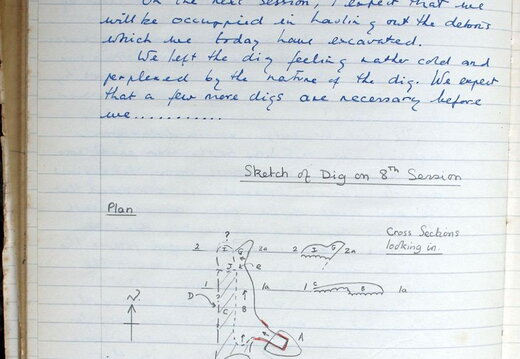 On the next session, I expect that we
will be occuppied in hauling out the debris
which we today have excavated.
We left the dig feeling rather cold and
perplexed by the nature of the dig. We expect
that a few more digs are necessary before
we...........
Sketch of Dig on 8th Session
Plan
Cross Sections
looking in.
?
2 I G 2a
2 I G 2a
J K e
1 1a
D C B
1 C B 1a
N
A